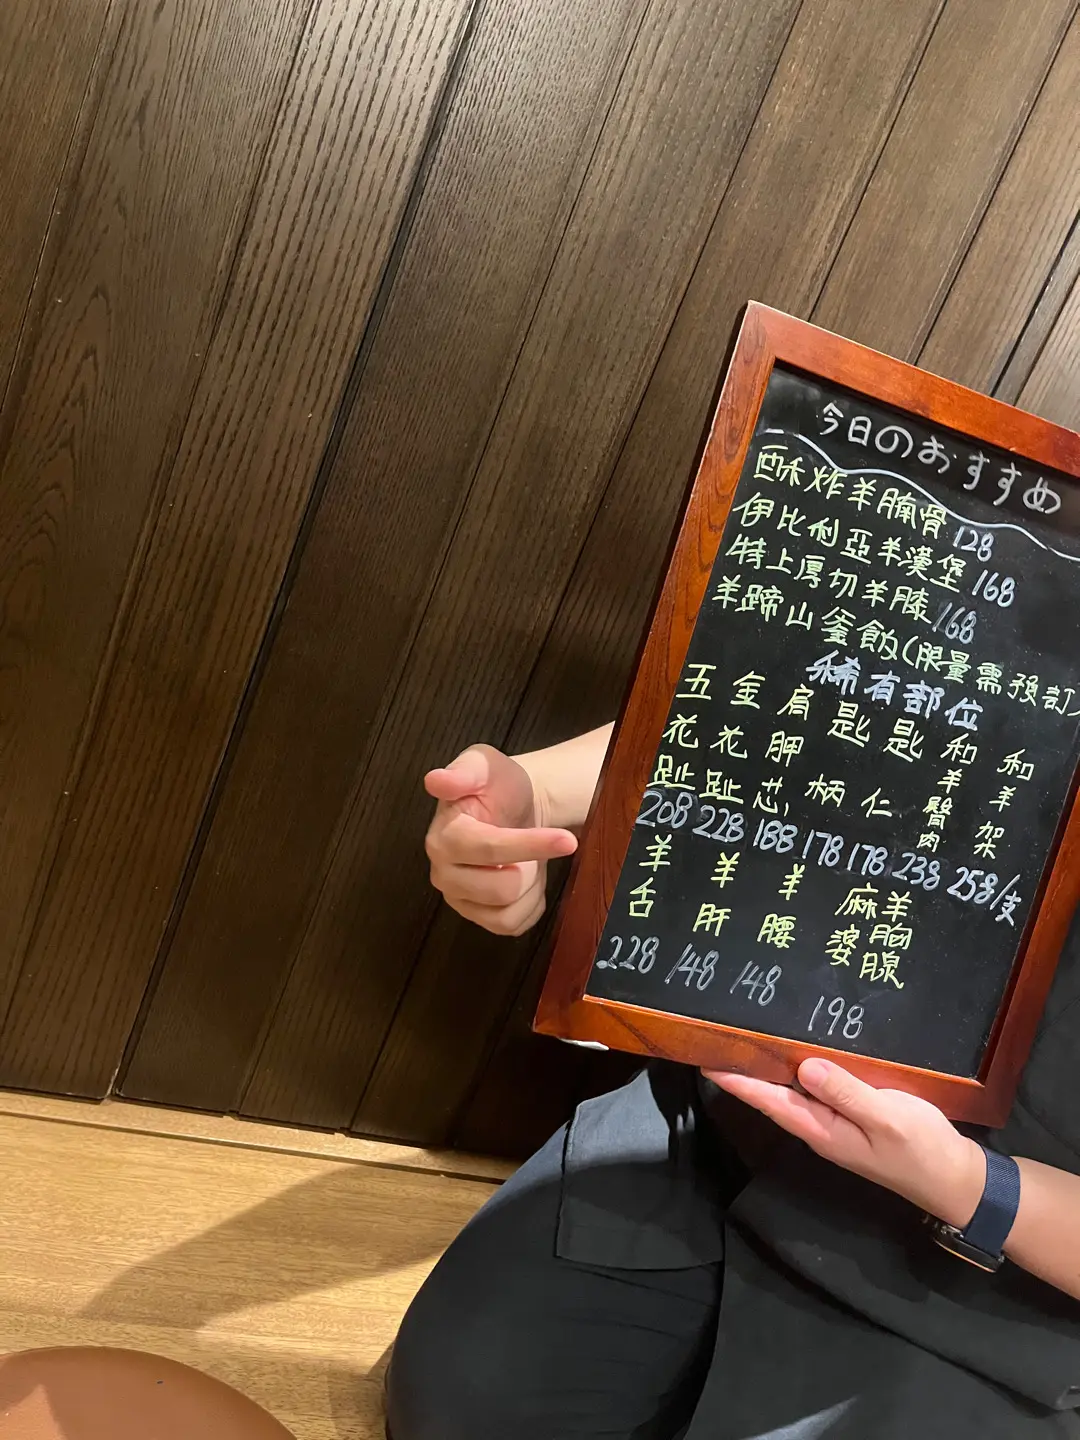 今日のおすすめ
酥炸羊腩骨 128
伊比利亞羊漢堡 168
特上厚切羊膝 168
羊蹄山釜飯(限量需預訂)
稀有部位
五花趾 208
金花趾 228
肩胛芯 188
匙柄 178
匙仁 178
和羊臀肉 238
和羊架 258/支
羊舌 228
羊肝 148
羊腰 148
麻婆羊胸腺 198